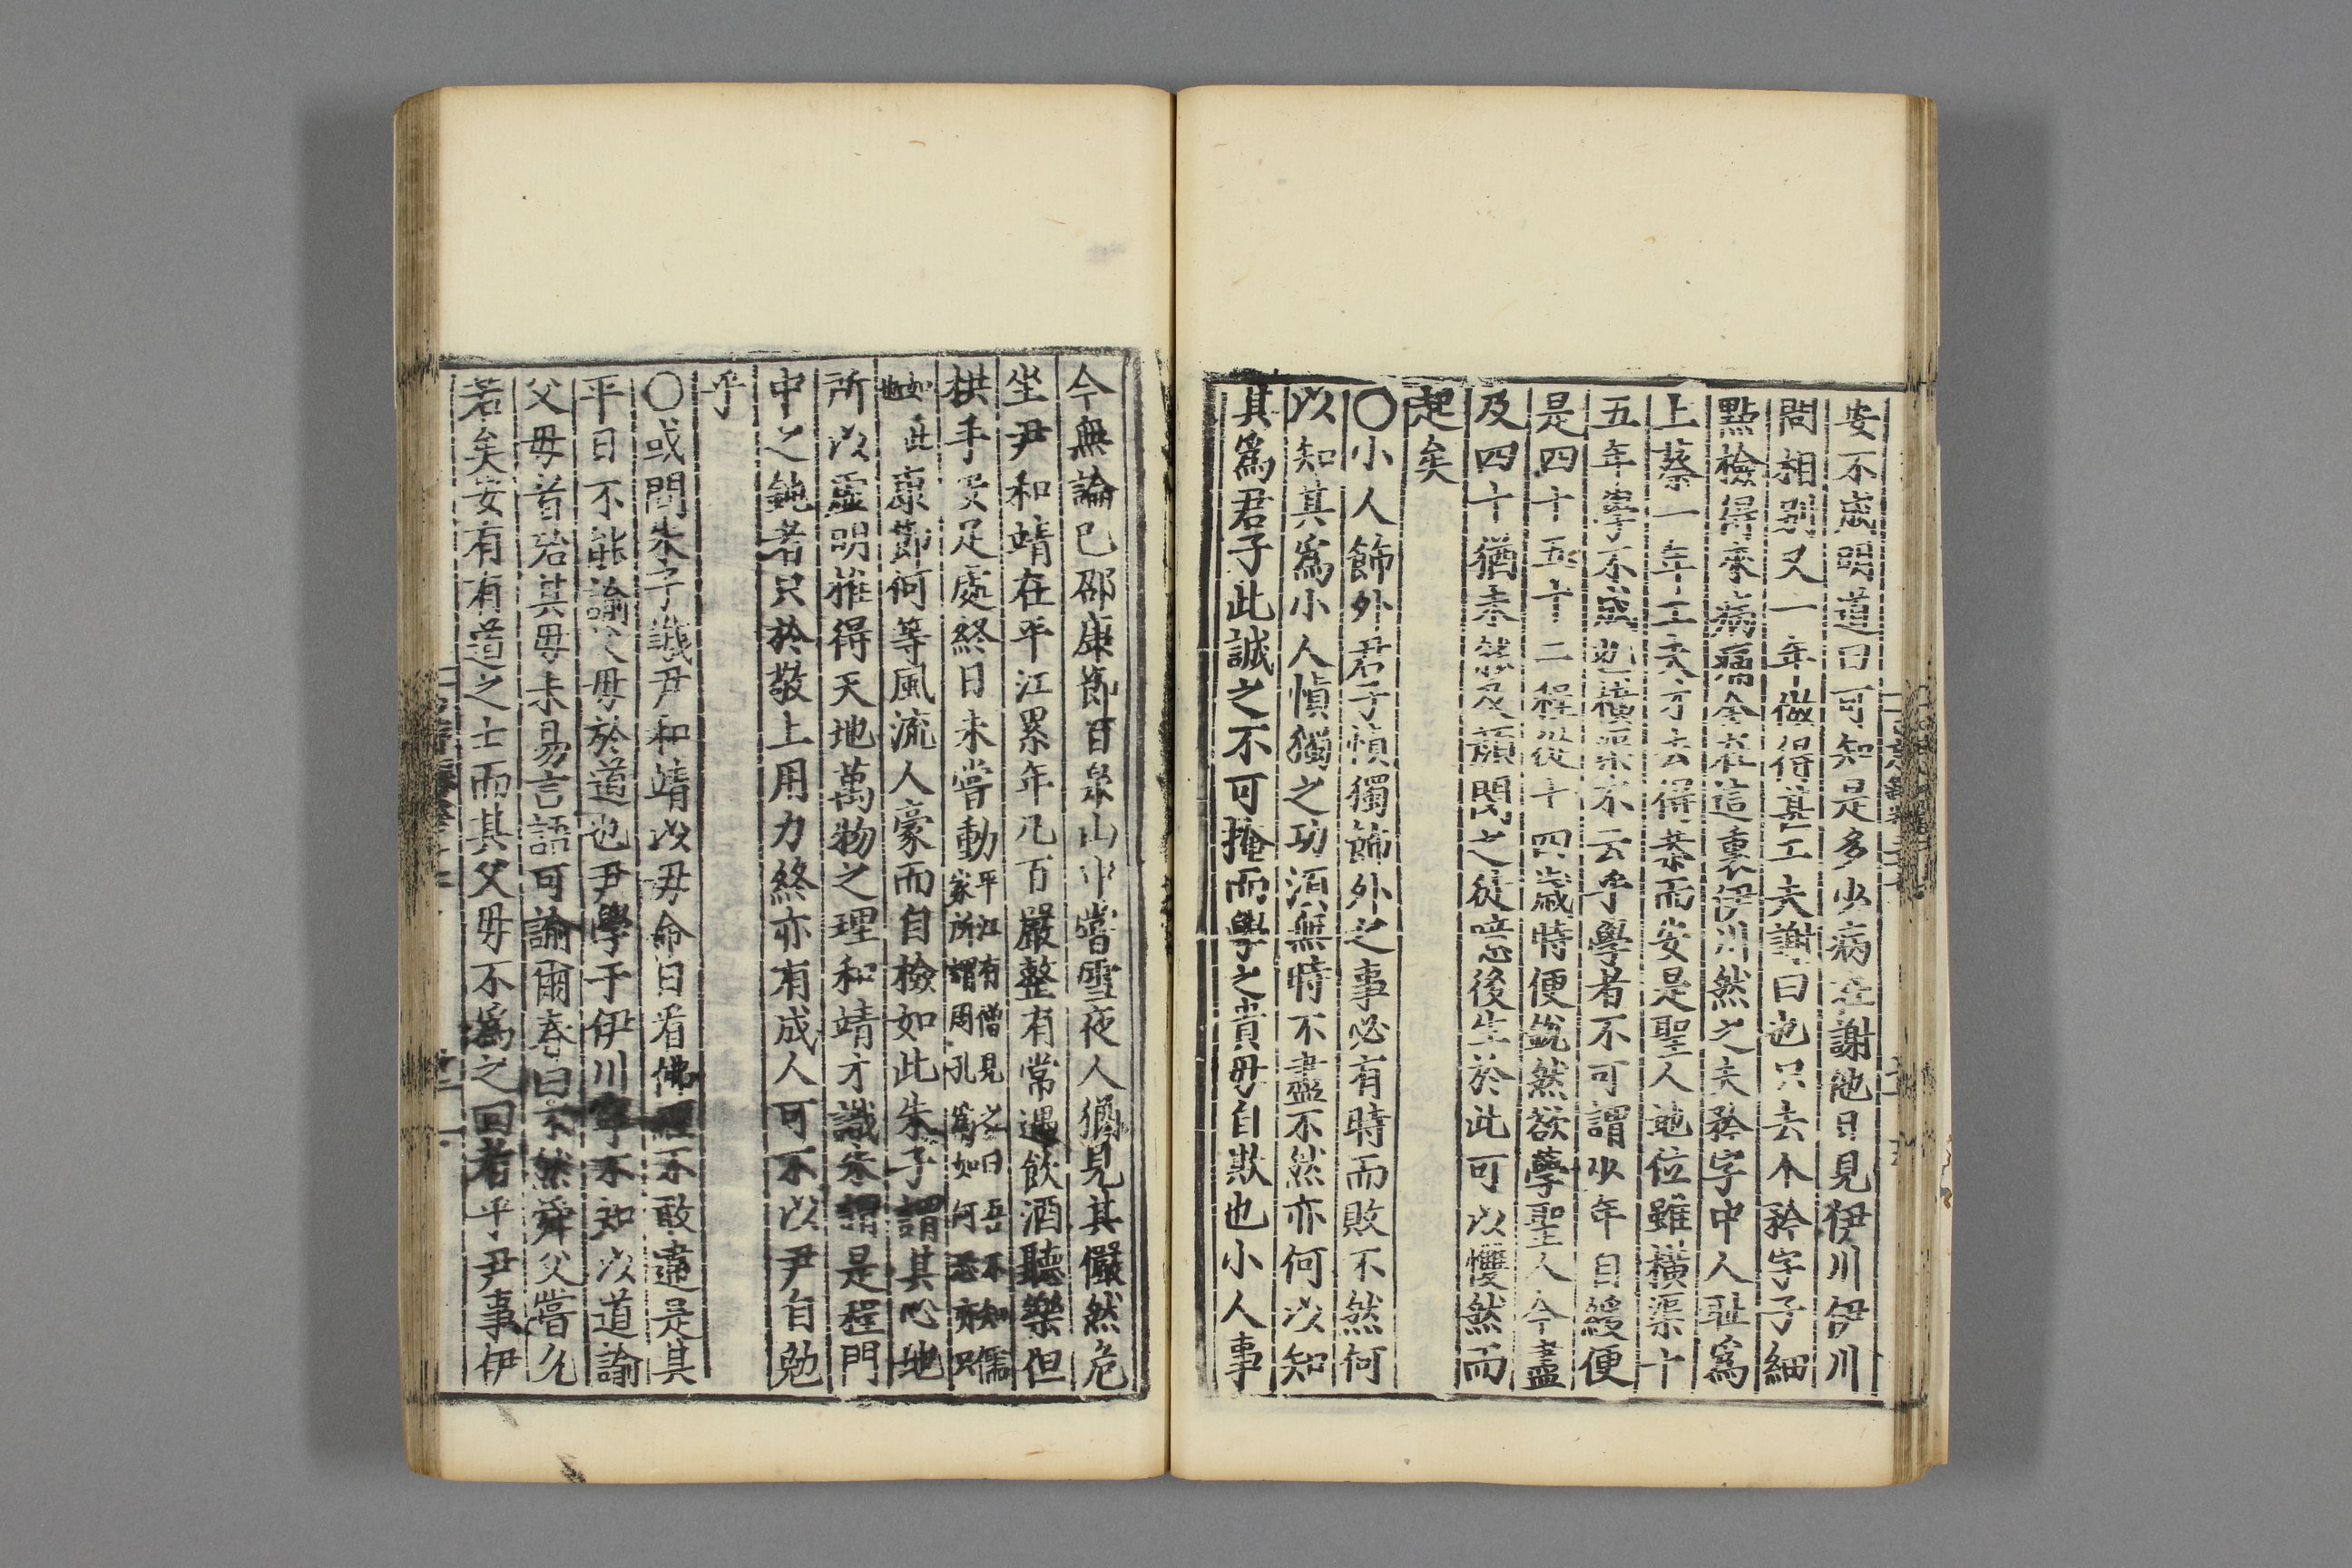 安不成明道曰可知是多少病在謝他日見伊川伊川
問相別又一年做得甚工夫謝曰也只去个矜字子細
點檢得來病痛全在這裏伊川然之夫矜字中人恥爲
上蔡一年工夫才去得恭而安是聖人地位雖橫渠十
五年學不成也橫渠不云乎學者不可謂少年自緩便
是四十五十二程從十四歲時便銳然欲學聖人今盡
及四十猶未然及顏閔之徒噫後生於此可以戄然而
起矣
〇小人飾外君子愼獨飾外之事必有時而敗不然何
以知其爲小人愼獨之功須無時不盡不然亦何以知
其爲君子此誠之不可掩而學之貴毋自欺也小人事
今無論已邵康節百泉山中嘗雪夜人猶見其儼然危
坐尹和靖在平江累年凡百嚴整有常遇飲酒聽樂但
拱手安足處終日未嘗動平江有僧見之曰吾不知儒家所謂周孔爲如何恐亦只
如此也康節何等風流人豪而自檢如此朱子謂其心地
所以虛明推得天地萬物之理和靖才識朱謂是程門
中之鈍者只於敬上用力終亦有成人可不以尹自勉
乎
〇或問朱子譏尹和靖以毋命日看佛經不敢違是其
平日不能諭父毋於道也尹學于伊川寧不知以道諭
父毋者若其毋未易言語可諭爾春曰不然舜父嘗允
若矣安有有道之士而其父毋不爲之回者乎尹事伊